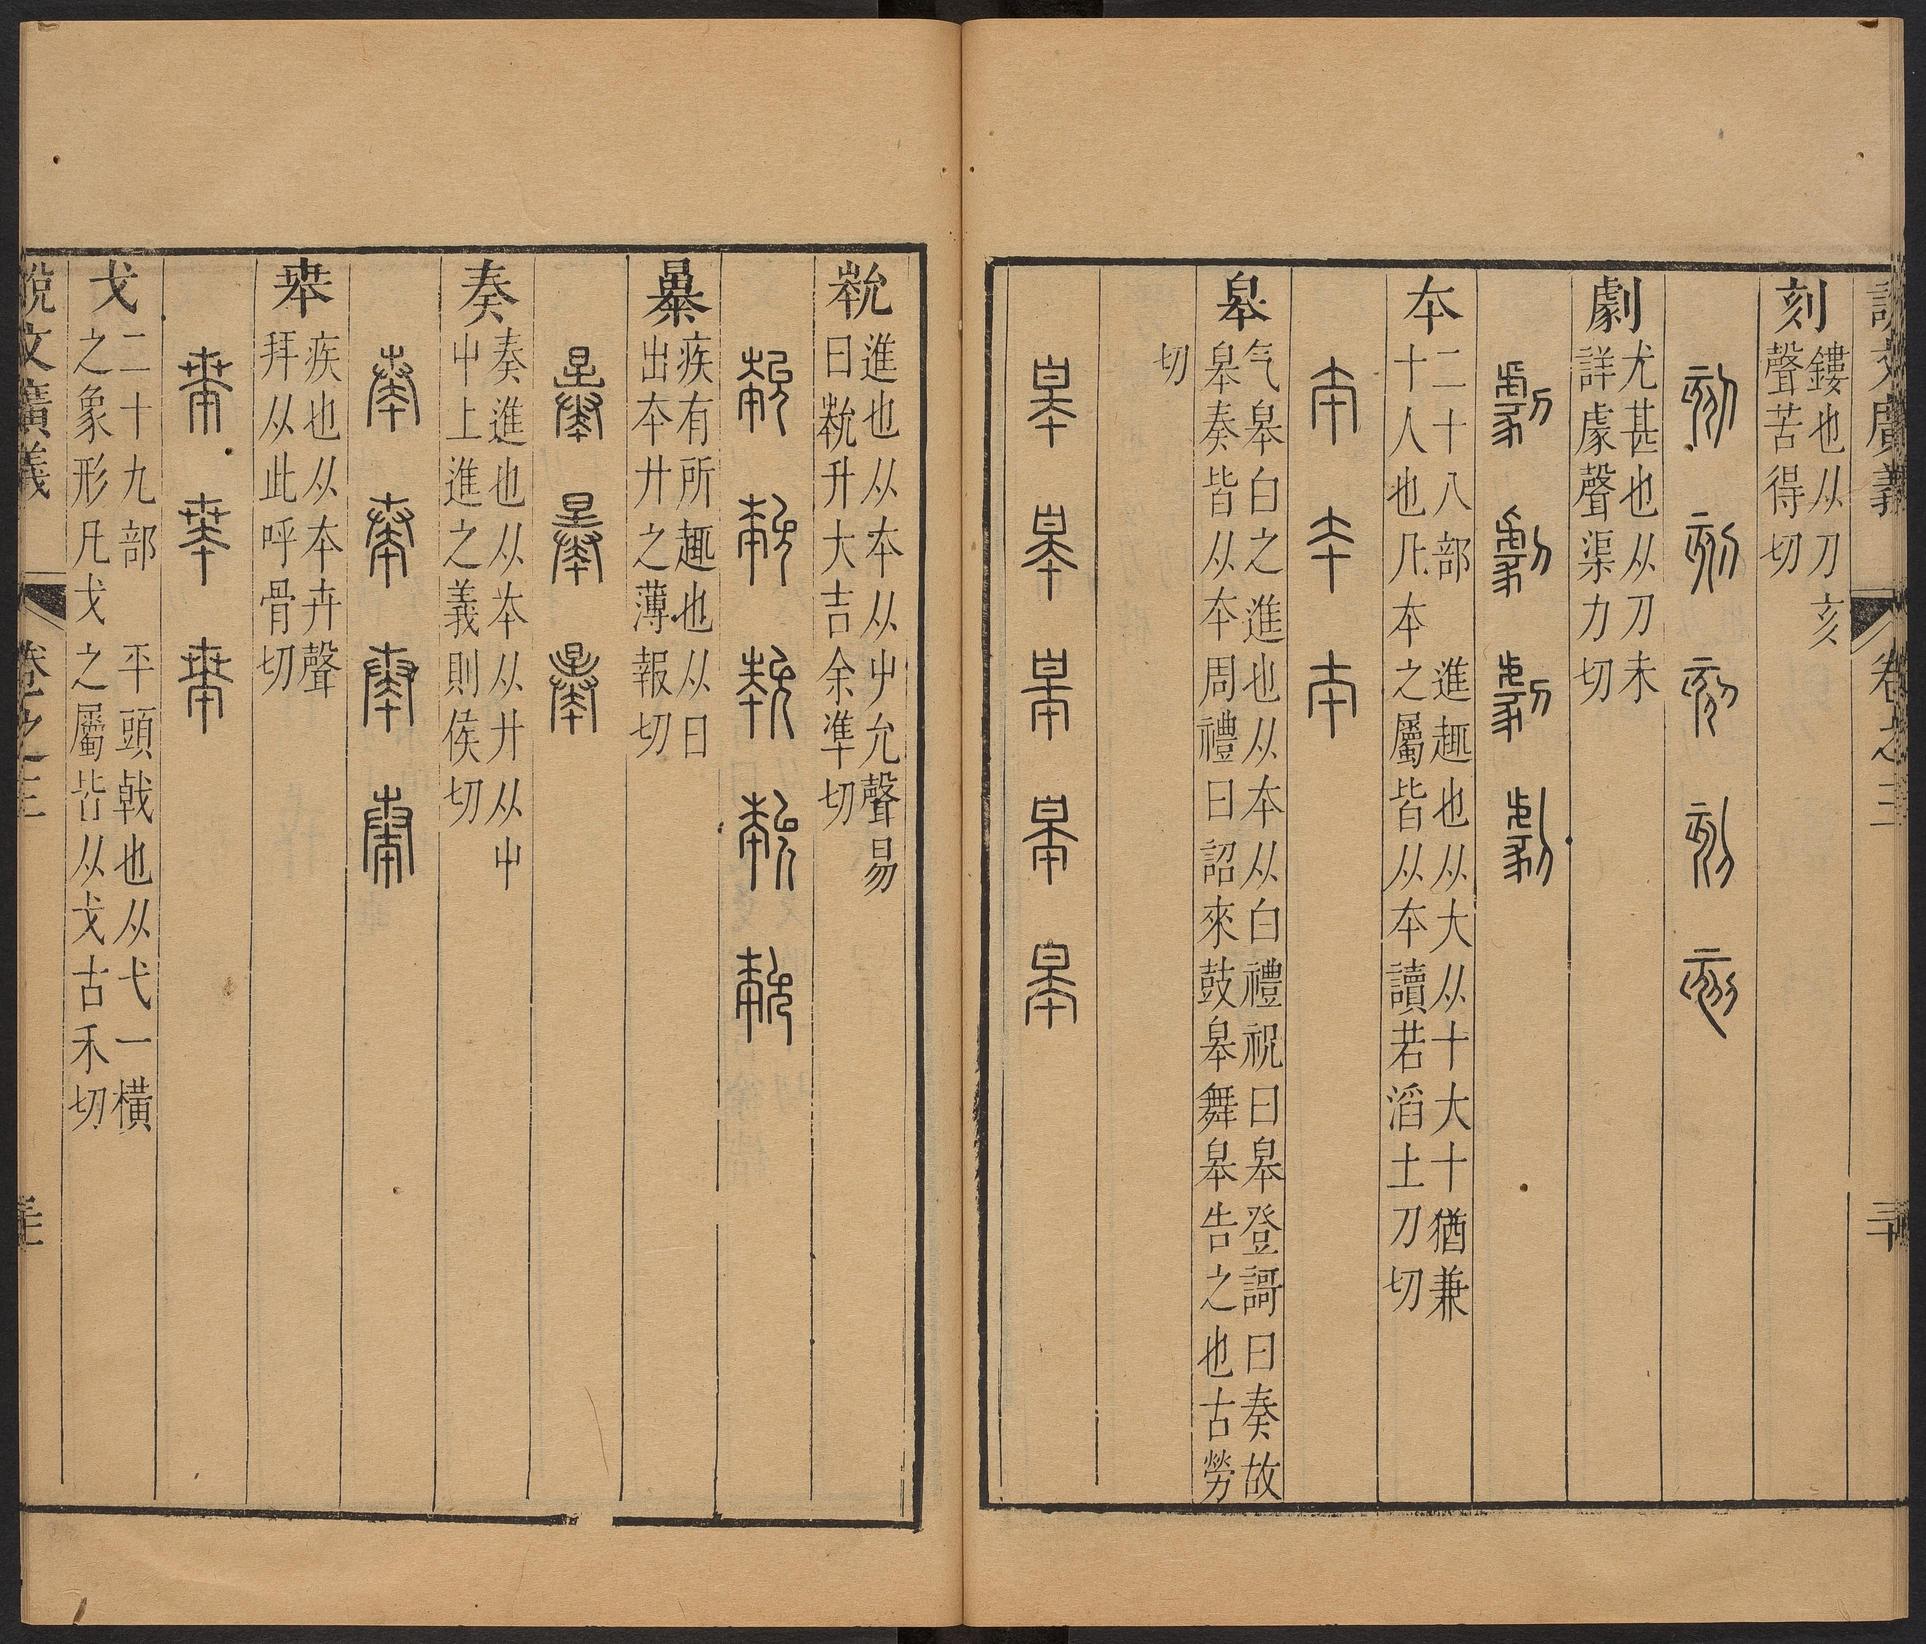 說文廣義
卷之三
三十
刻
鏤也从刀亥
聲苦得切
劇
尤甚也从刀未
詳豦聲渠力切
夲
二十八部 進趣也从大从十大十猶兼
十人也凡夲之屬皆从夲讀若滔土刀切
皋
气皋白之進也从夲从白禮祝曰皋登謌曰奏故
皋奏皆从夲周禮曰詔來鼓皋舞皋告之也古勞
切
㚔
進也从夲从屮允聲易
曰㚔升大吉余準切
暴
疾有所趣也从日
出夲廾之薄報切
奏
奏進也从夲从廾从屮
屮上進之義則侯切
𠦪
疾也从夲卉聲
拜从此呼骨切
戈
二十九部 平頭戟也从弋一橫
之象形凡戈之屬皆从戈古禾切
說文廣義
卷之三